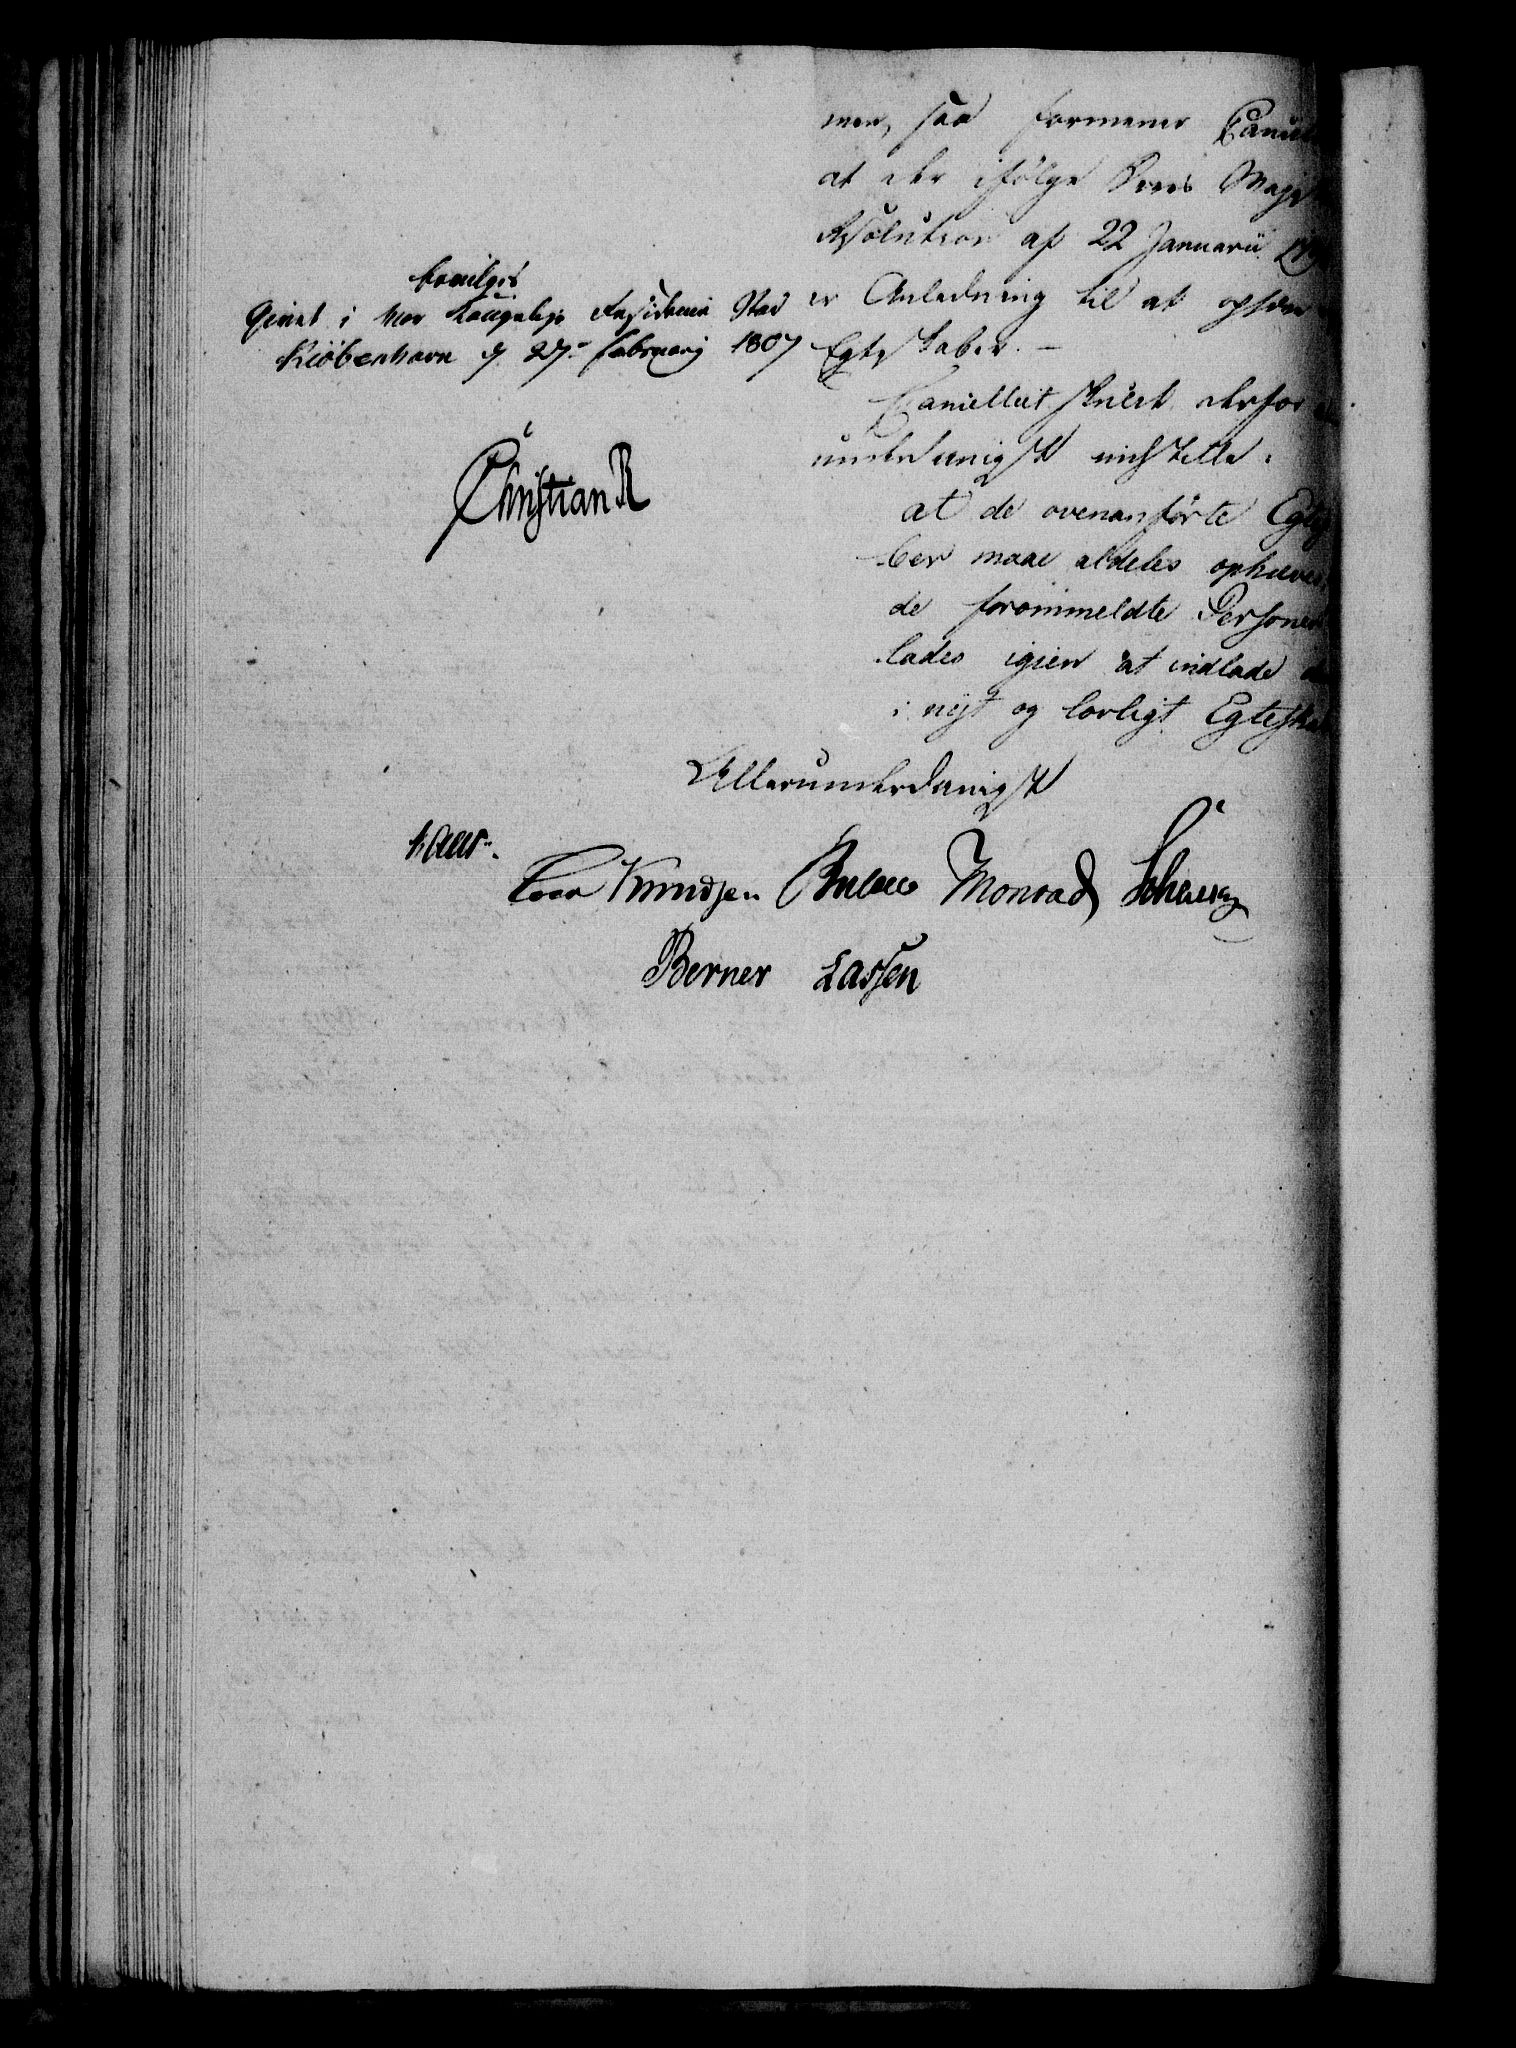 men, saa formener Cancel
at der ifølge Deres Maje
Resolution af 22 Januarii 179
er Anledning til at ophæve
Egteskaber. –
Cancelliet skulde derfor
underdanigst indstille:
at de ovenanførte Egte
ber maae aldeles ophæves
de forommeldte Personer
lades igien at indlade
i nyt og lovligt Egteska
Allerunderdanigst
bevilges
Givet i vor Kongelige Residence Stad
Kiöbenhavn d 27de February 1807
Christian R
Kaas.
Knudsen Bülow Monrad
Berner Lassen